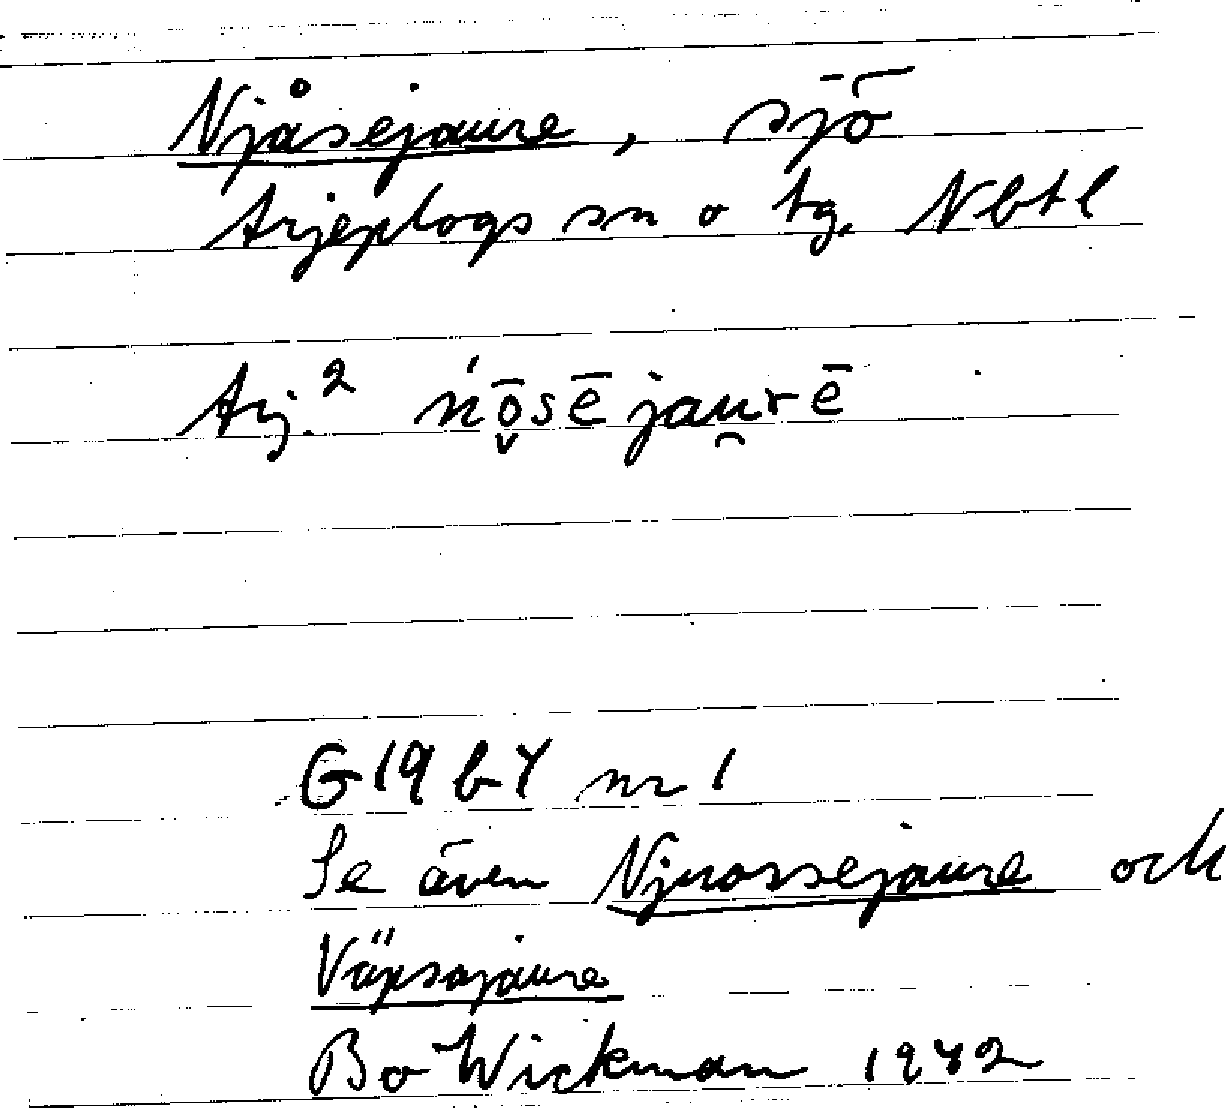 Njåsejaure, sjö
Arjeplogs sn o tg. Nbtl
Arj.² ńō̬sējau̯rē
G19 b4 nr 1
Se även Njuossejaure och
Väpsajaure
Bo Wickman 1942